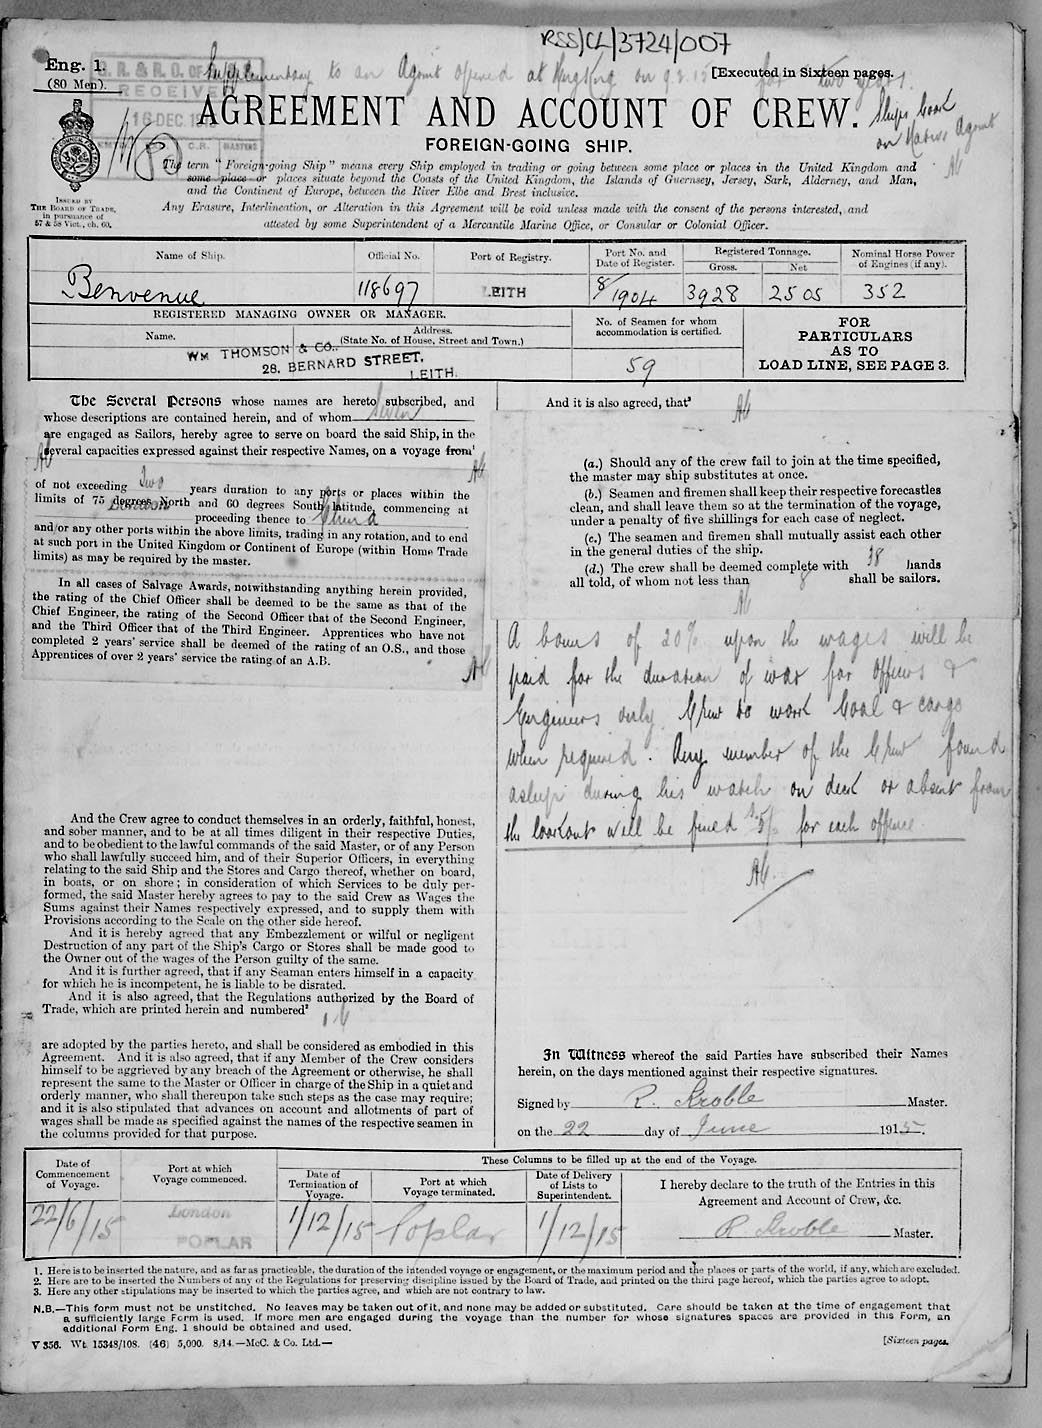 RSS/CL/3724/007
Eng. 1.
(80 Men).
Supplementary to an Agmt opened at Hong Kong on 9.2.15 for two years.
[Executed in Sixteen pages.
RECEIVED
16 DEC. 1915
AGREEMENT AND ACCOUNT OF CREW.
Ships book
on Native Agmt
FOREIGN-GOING SHIP.
The term "Foreign-going Ship" means every Ship employed in trading or going between some place or places in the United Kingdom and
some place or places situate beyond the Coasts of the United Kingdom, the Islands of Guernsey, Jersey, Sark, Alderney, and Man,
and the Continent of Europe, between the River Elbe and Brest inclusive.
ISSUED BY
THE BOARD OF TRADE,
in pursuance of
57 & 58 Vict., ch. 60.
Any Erasure, Interlineation, or Alteration in this Agreement will be void unless made with the consent of the persons interested, and
attested by some Superintendent of a Mercantile Marine Office, or Consular or Colonial Officer.
Name of Ship. Official No. Port of Registry. Port No. and Date of Register. Registered Tonnage. Gross. Net Nominal Horse Power of Engines (if any).
Benvenue 118697 LEITH 8/1904 3928 2505 352
REGISTERED MANAGING OWNER OR MANAGER.
Name. Address. (State No. of House, Street and Town.)
WM THOMSON & CO.,
28. BERNARD STREET,
LEITH.
No. of Seamen for whom
accommodation is certified.
59
FOR
PARTICULARS
AS TO
LOAD LINE, SEE PAGE 3.
The Several Persons whose names are hereto subscribed, and
whose descriptions are contained herein, and of whom Seven
are engaged as Sailors, hereby agree to serve on board the said Ship, in the
several capacities expressed against their respective Names, on a voyage from¹
of not exceeding Two years duration to any ports or places within the
limits of 75 degrees North and 60 degrees South latitude, commencing at
London proceeding thence to China
and/or any other ports within the above limits, trading in any rotation, and to end
at such port in the United Kingdom or Continent of Europe (within Home Trade
limits) as may be required by the master.
In all cases of Salvage Awards, notwithstanding anything herein provided,
the rating of the Chief Officer shall be deemed to be the same as that of the
Chief Engineer, the rating of the Second Officer that of the Second Engineer,
and the Third Officer that of the Third Engineer. Apprentices who have not
completed 2 years' service shall be deemed of the rating of an O.S., and those
Apprentices of over 2 years' service the rating of an A.B.
And the Crew agree to conduct themselves in an orderly, faithful, honest,
and sober manner, and to be at all times diligent in their respective Duties,
and to be obedient to the lawful commands of the said Master, or of any Person
who shall lawfully succeed him, and of their Superior Officers, in everything
relating to the said Ship and the Stores and Cargo thereof, whether on board,
in boats, or on shore; in consideration of which Services to be duly per-
formed, the said Master hereby agrees to pay to the said Crew as Wages the
Sums against their Names respectively expressed, and to supply them with
Provisions according to the Scale on the other side hereof.
And it is hereby agreed that any Embezzlement or wilful or negligent
Destruction of any part of the Ship's Cargo or Stores shall be made good to
the Owner out of the wages of the Person guilty of the same.
And it is further agreed, that if any Seaman enters himself in a capacity
for which he is incompetent, he is liable to be disrated.
And it is also agreed, that the Regulations authorized by the Board of
Trade, which are printed herein and numbered²
are adopted by the parties hereto, and shall be considered as embodied in this
Agreement. And it is also agreed, that if any Member of the Crew considers
himself to be aggrieved by any breach of the Agreement or otherwise, he shall
represent the same to the Master or Officer in charge of the Ship in a quiet and
orderly manner, who shall thereupon take such steps as the case may require;
and it is also stipulated that advances on account and allotments of part of
wages shall be made as specified against the names of the respective seamen in
the columns provided for that purpose.
And it is also agreed, that³
(a.) Should any of the crew fail to join at the time specified,
the master may ship substitutes at once.
(b.) Seamen and firemen shall keep their respective forecastles
clean, and shall leave them so at the termination of the voyage,
under a penalty of five shillings for each case of neglect.
(c.) The seamen and firemen shall mutually assist each other
in the general duties of the ship.
(d.) The crew shall be deemed complete with 38 hands
all told, of whom not less than 8 shall be sailors.
A bonus of 20% upon the wages will be
paid for the duration of war for officers &
Engineers only. Crew to work Coal & cargo
when required. Any member of the Crew found
asleep during his watch on deck or absent from
the lookout will be fined 5/- for each offence.
In Witness whereof the said Parties have subscribed their Names
herein, on the days mentioned against their respective signatures.
Signed by R. Kroble Master.
on the 22 day of June 1915.
Date of Commencement of Voyage. Port at which Voyage commenced. These Columns to be filled up at the end of the Voyage.
Date of Termination of Voyage. Port at which Voyage terminated. Date of Delivery of Lists to Superintendent. I hereby declare to the truth of the Entries in this Agreement and Account of Crew, &c.
22/6/15 London POPLAR 1/12/15 Poplar 1/12/15 R Kroble Master.
1. Here is to be inserted the nature, and as far as practicable, the duration of the intended voyage or engagement, or the maximum period and the places or parts of the world, if any, which are excluded.
2. Here are to be inserted the Numbers of any of the Regulations for preserving discipline issued by the Board of Trade, and printed on the third page hereof, which the parties agree to adopt.
3. Here any other stipulations may be inserted to which the parties agree, and which are not contrary to law.
N.B.—This form must not be unstitched. No leaves may be taken out of it, and none may be added or substituted. Care should be taken at the time of engagement that
a sufficiently large Form is used. If more men are engaged during the voyage than the number for whose signatures spaces are provided in this Form, an
additional Form Eng. 1 should be obtained and used.
V 356. Wt. 15348/108. (46) 5,000. 8/14.—McC. & Co. Ltd.—
[Sixteen pages.